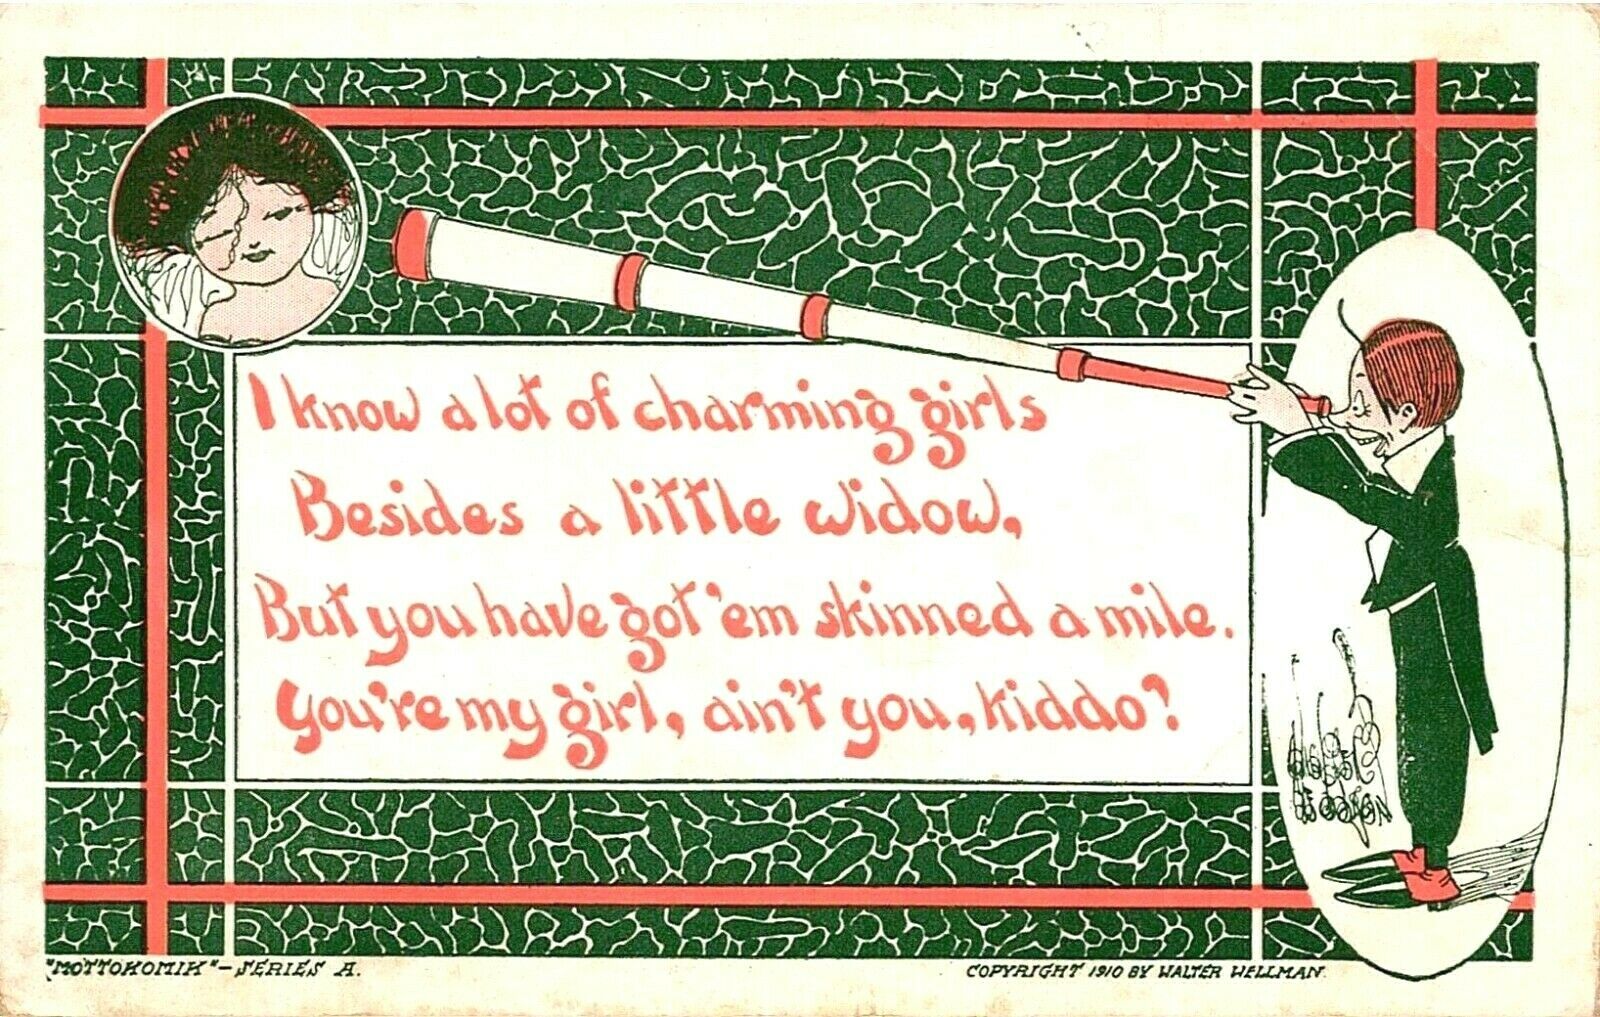 I know a lot of charming girls
Besides a little widow,
But you have got 'em skinned a mile.
You're my girl, ain't you, kiddo?
"MOTTOKOMIK" - SERIES A.
COPYRIGHT 1910 BY WALTER WELLMAN.